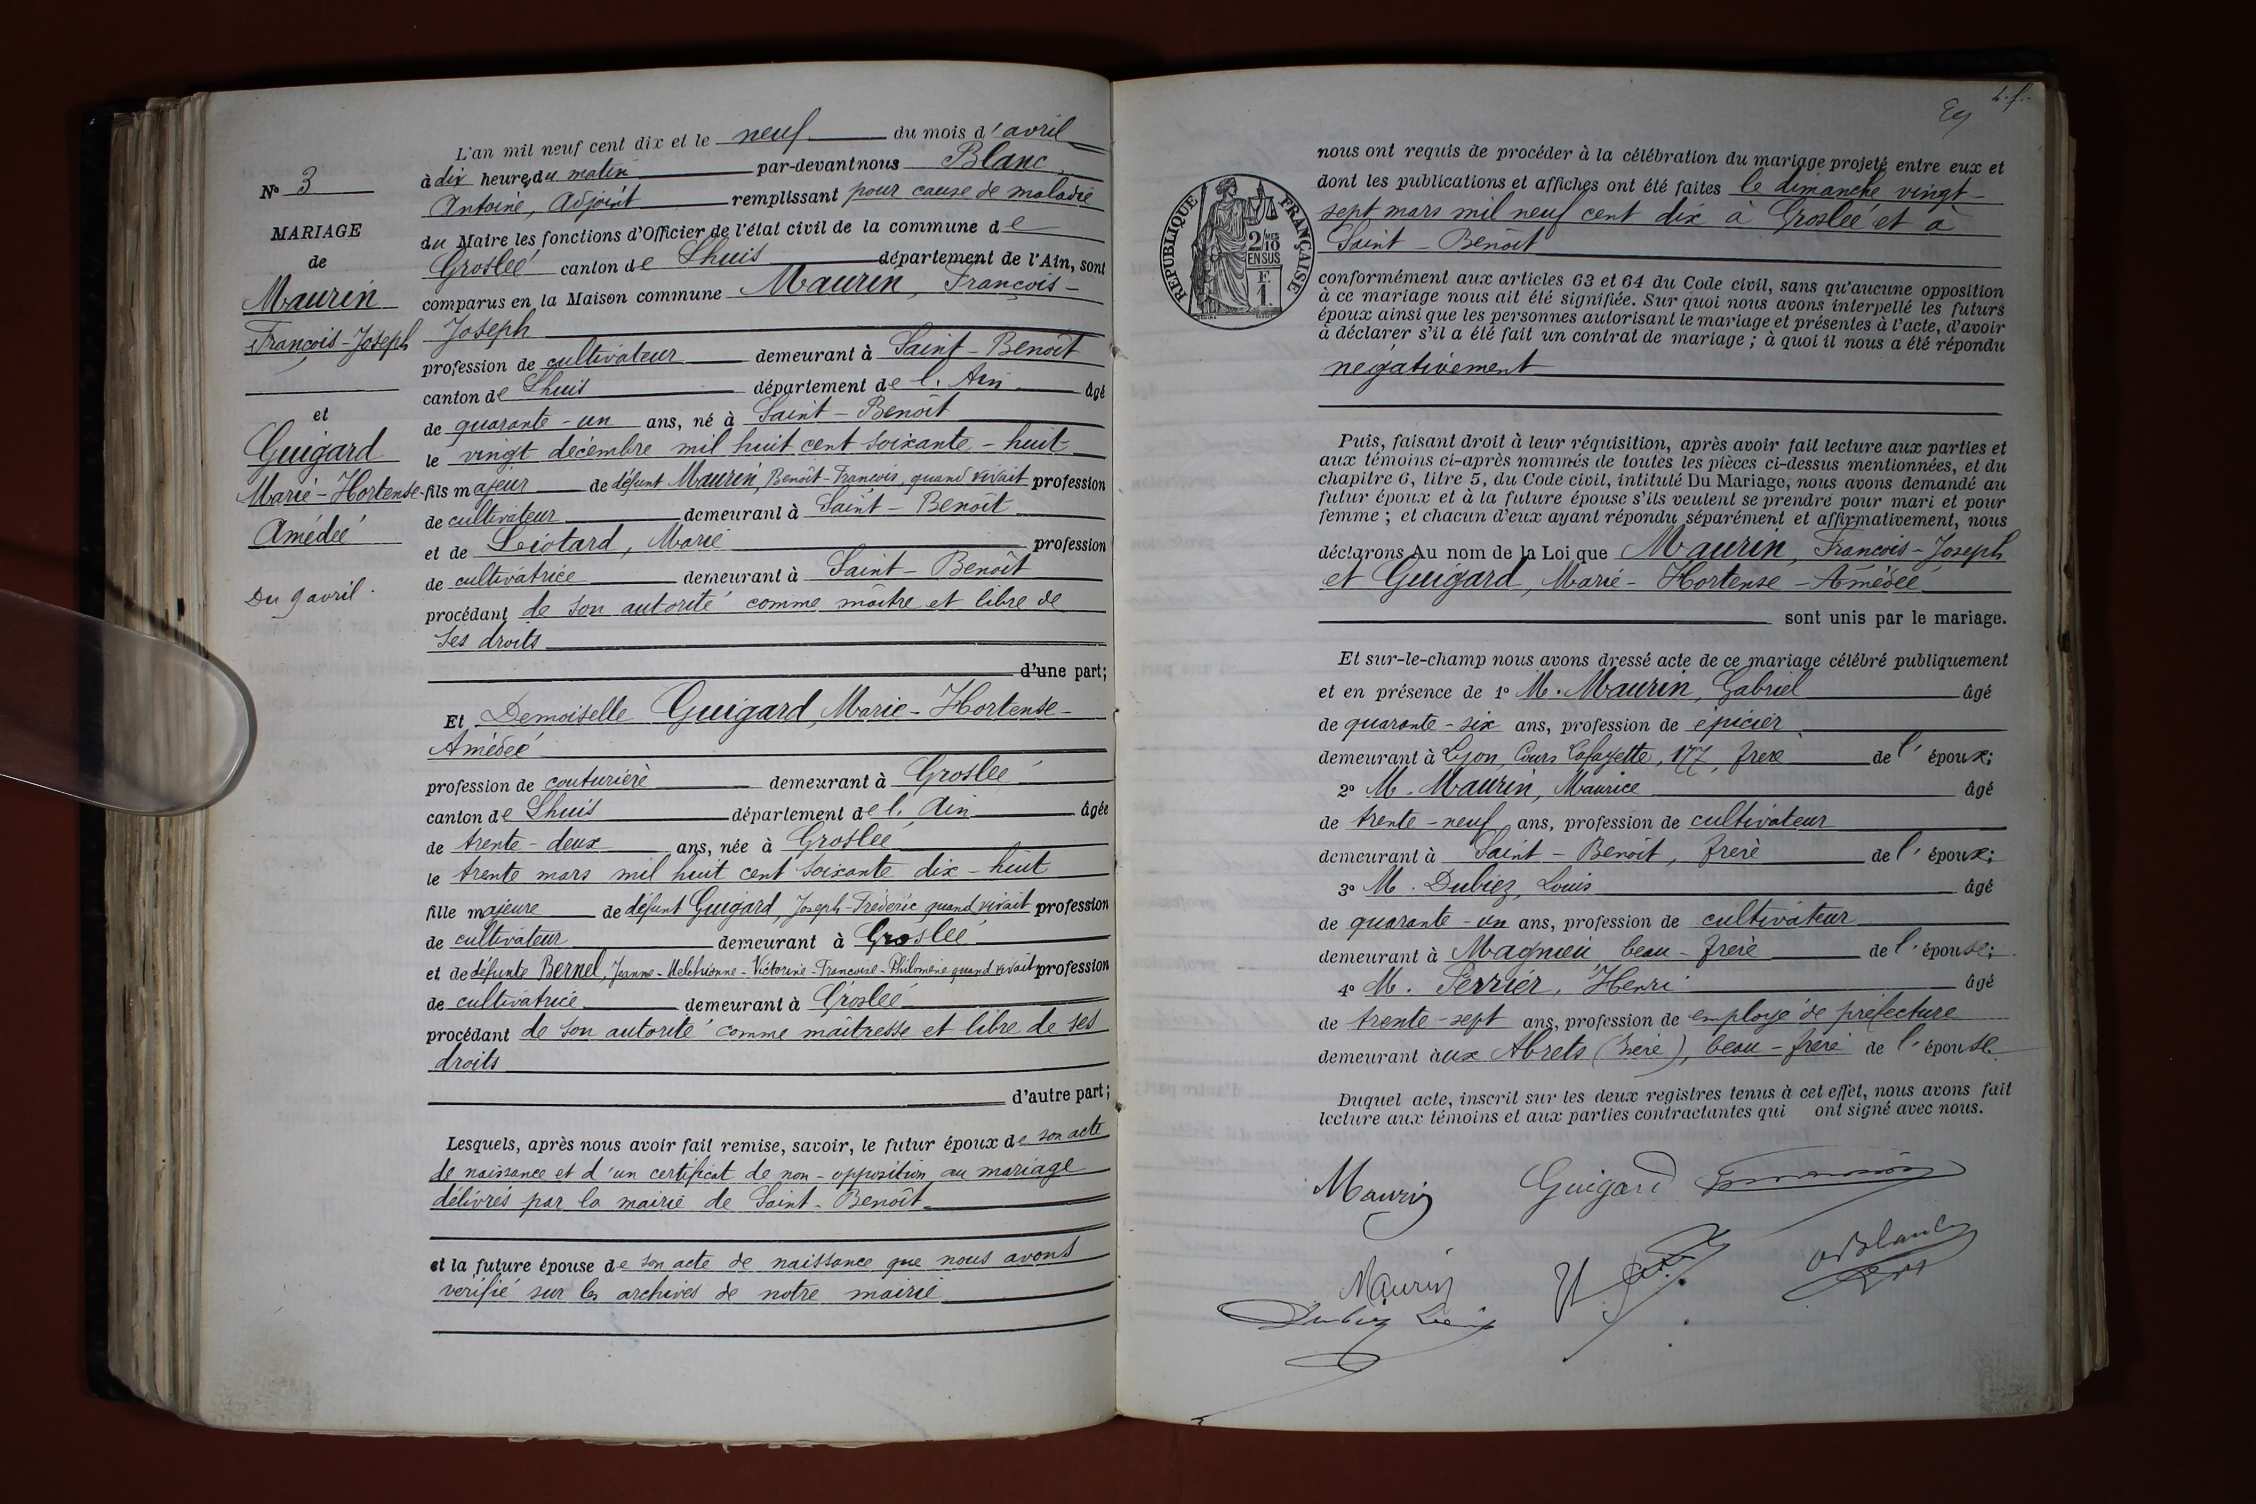 N° 3
MARIAGE
de
Maurin
François-Joseph
et
Guigard
Marie-Hortense-
Amédée
Du 9 avril.
L'an mil neuf cent dix et le neuf du mois d'avril
à dix heures du matin par-devant nous Blanc
Antoine, Adjoint remplissant pour cause de maladie
du Maire les fonctions d'Officier de l'état civil de la commune de
Groslée canton de Lhuis département de l'Ain, sont
comparus en la Maison commune Maurin, François-
Joseph
profession de cultivateur demeurant à Saint-Benoît
canton de Lhuis département de l'Ain âgé
de quarante-un ans, né à Saint-Benoît
le vingt décembre mil huit cent soixante-huit
fils majeur de défunt Maurin, Benoît-François, quand vivait profession
de cultivateur demeurant à Saint-Benoît
et de Liotard, Marie profession
de cultivatrice demeurant à Saint-Benoît
procédant de son autorité comme maître et libre de
ses droits
d'une part;
Et Demoiselle Guigard, Marie-Hortense-
Amédée
profession de couturière demeurant à Groslée
canton de Lhuis département de l'Ain âgée
de trente-deux ans, née à Groslée
le trente mars mil huit cent soixante dix-huit
fille majeure de défunt Guigard, Joseph-Frédéric quand vivait profession
de cultivateur demeurant à Groslée
et de défunte Bernel, Jeanne-Melchionne-Victorine-Françoise-Philomène quand vivait profession
de cultivatrice demeurant à Groslée
procédant de son autorité comme maîtresse et libre de ses
droits
d'autre part;
Lesquels, après nous avoir fait remise, savoir, le futur époux de son acte
de naissance et d'un certificat de non-opposition au mariage
délivrés par la mairie de Saint-Benoît
et la future épouse de son acte de naissance que nous avons
vérifié sur les archives de notre mairie
RÉPUBLIQUE FRANÇAISE
2/10 MES
EN SUS
F.
1.
nous ont requis de procéder à la célébration du mariage projeté entre eux et
dont les publications et affiches ont été faites le dimanche vingt-
sept mars mil neuf cent dix à Groslée et à
Saint-Benoît
conformément aux articles 63 et 64 du Code civil, sans qu'aucune opposition
à ce mariage nous ait été signifiée. Sur quoi nous avons interpellé les futurs
époux ainsi que les personnes autorisant le mariage et présentes à l'acte, d'avoir
à déclarer s'il a été fait un contrat de mariage; à quoi il nous a été répondu
négativement
Puis, faisant droit à leur réquisition, après avoir fait lecture aux parties et
aux témoins ci-après nommés de toutes les pièces ci-dessus mentionnées, et du
chapitre 6, titre 5, du Code civil, intitulé Du Mariage, nous avons demandé au
futur époux et à la future épouse s'ils veulent se prendre pour mari et pour
femme; et chacun d'eux ayant répondu séparément et affirmativement, nous
déclarons Au nom de la Loi que Maurin, François-Joseph
et Guigard, Marie-Hortense-Amédée
sont unis par le mariage.
Et sur-le-champ nous avons dressé acte de ce mariage célébré publiquement
et en présence de 1° M. Maurin, Gabriel âgé
de quarante-six ans, profession de épicier
demeurant à Lyon, Cours Lafayette, 177, frère de l'époux;
2° M. Maurin, Maurice âgé
de trente-neuf ans, profession de cultivateur
demeurant à Saint-Benoît, frère de l'époux;
3° M. Dubiez, Louis âgé
de quarante-un ans, profession de cultivateur
demeurant à Magnieu beau-frère de l'épouse;
4° M. Perrier, Henri âgé
de trente-sept ans, profession de employé de préfecture
demeurant aux Abrets (Isère), beau-frère de l'épouse.
Duquel acte, inscrit sur les deux registres tenus à cet effet, nous avons fait
lecture aux témoins et aux parties contractantes qui ont signé avec nous.
Maurin Guigard
Maurin
Dubiez Louis